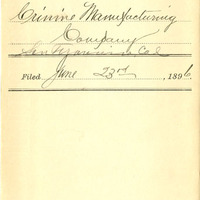 Crinine Manufacturing
Company
San Francisco Cal
Filed June 23rd, 1896